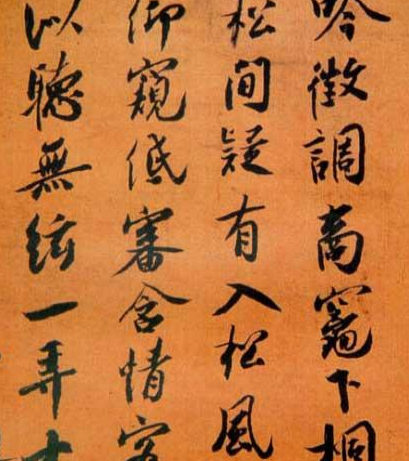 吟徵調商竈下桐
松間疑有入松風
仰窺低審含情客
以聽無絃一弄